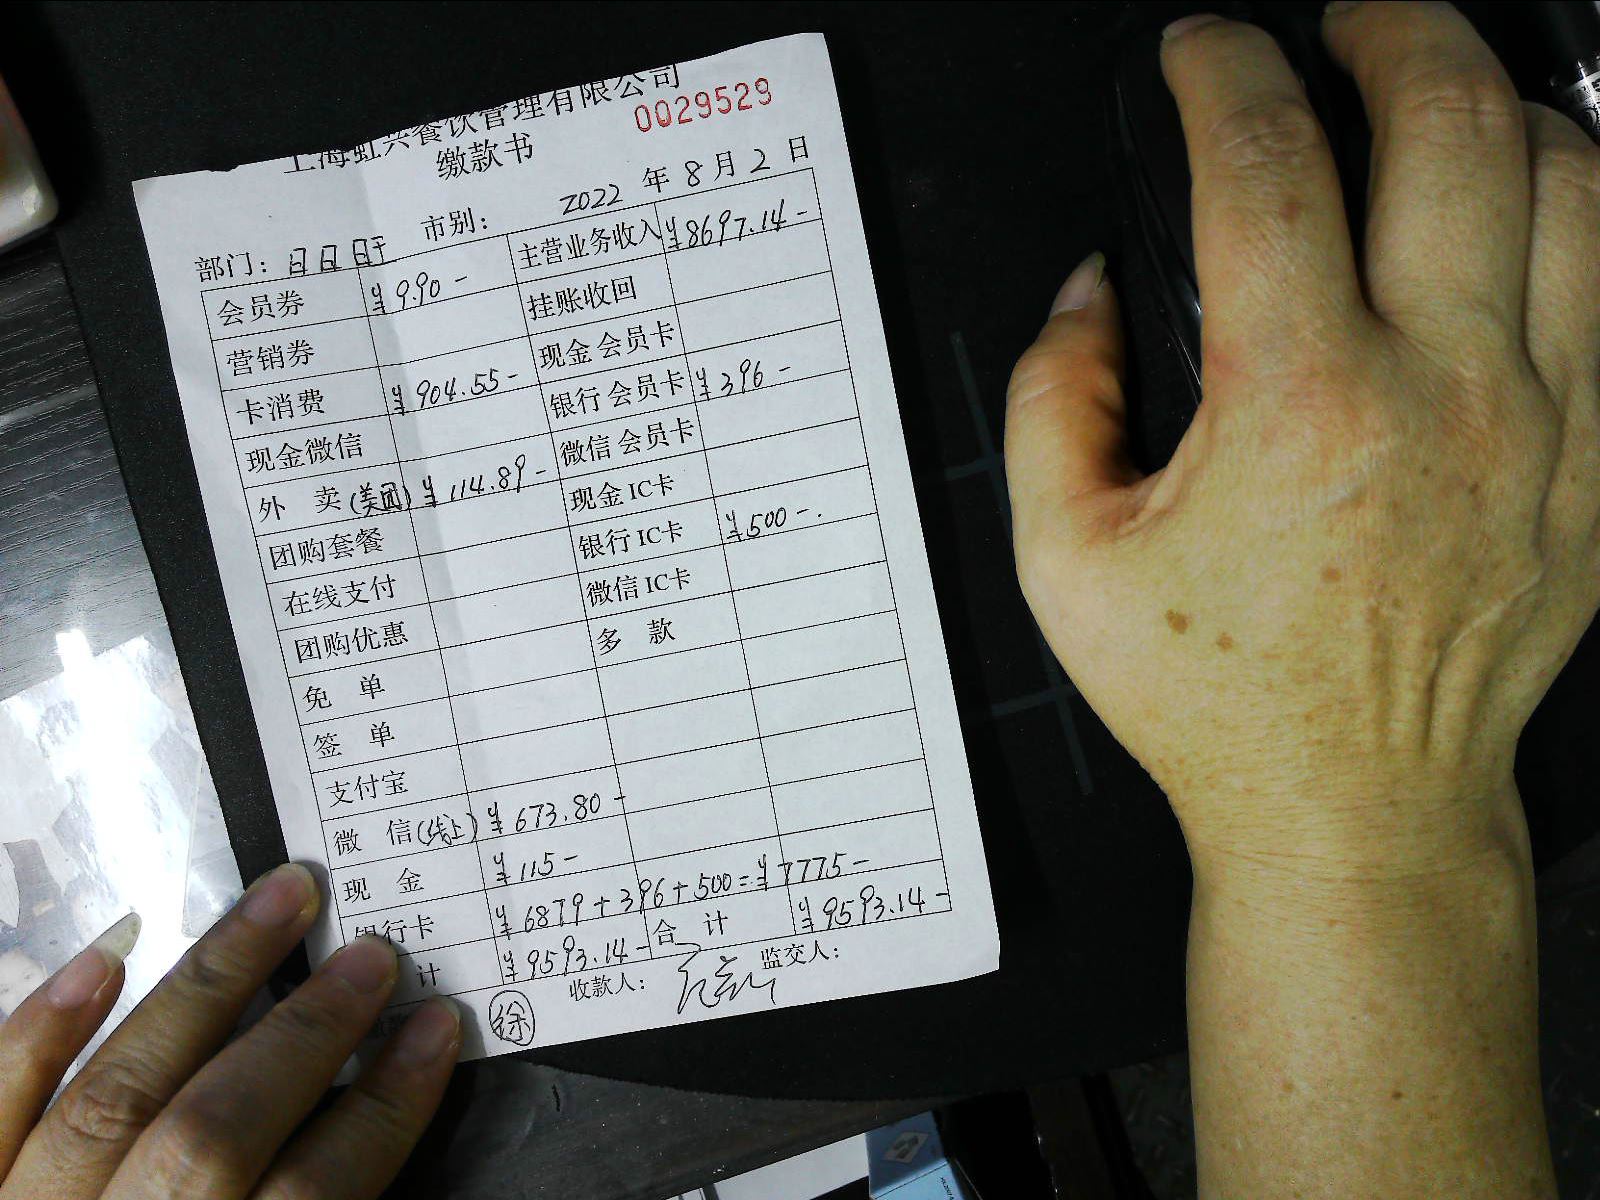 上海虹兴餐饮管理有限公司
0029529
缴款书
2022 年 8 月 2 日
部门: 日日日干 市别:
会员券 ¥9.90 - 主营业务收入 ¥8697.14 -
营销券 挂账收回
卡消费 ¥904.55 - 现金 会员卡
现金微信 银行 会员卡 ¥396 -
外 卖 (美团) ¥114.89 - 微信 会员卡
团购套餐 现金 IC卡
在线支付 银行 IC卡 ¥500 -.
团购优惠 微信 IC卡
免 单 多 款
签 单
支付宝
微 信 (线上) ¥673.80 -
现 金 ¥115 -
银行卡 ¥6879 + 396 + 500 = ¥7775 -
计 ¥9593.14 - 合 计 ¥9593.14 -
徐 收款人: 监交人: